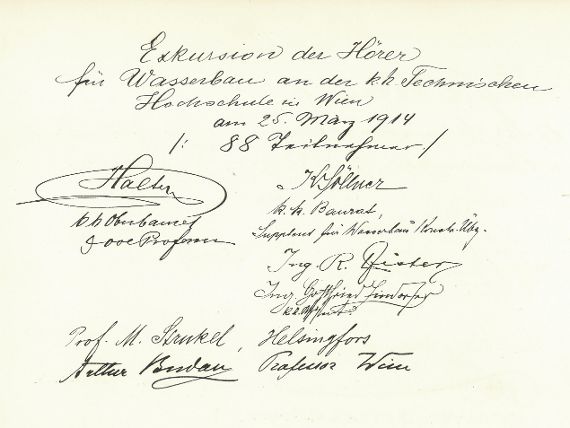 Exkursion der Hörer
für Wasserbau an der k.k. Technischen
Hochschule in Wien
am 25. März 1914
/: 88 Teilnehmer :/
Halter
k k Oberbaurat
Professor
K Söllner
k. k. Baurat,
Supplent für Wasserbau Konstr. Übg.
Ing. R.
Ing. Gottfried
Prof. M. Strukel, Helsingfors
Arthur Budau Professor Wien